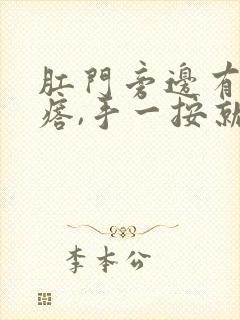 肛門旁邊有
痞,手一按就
李本公